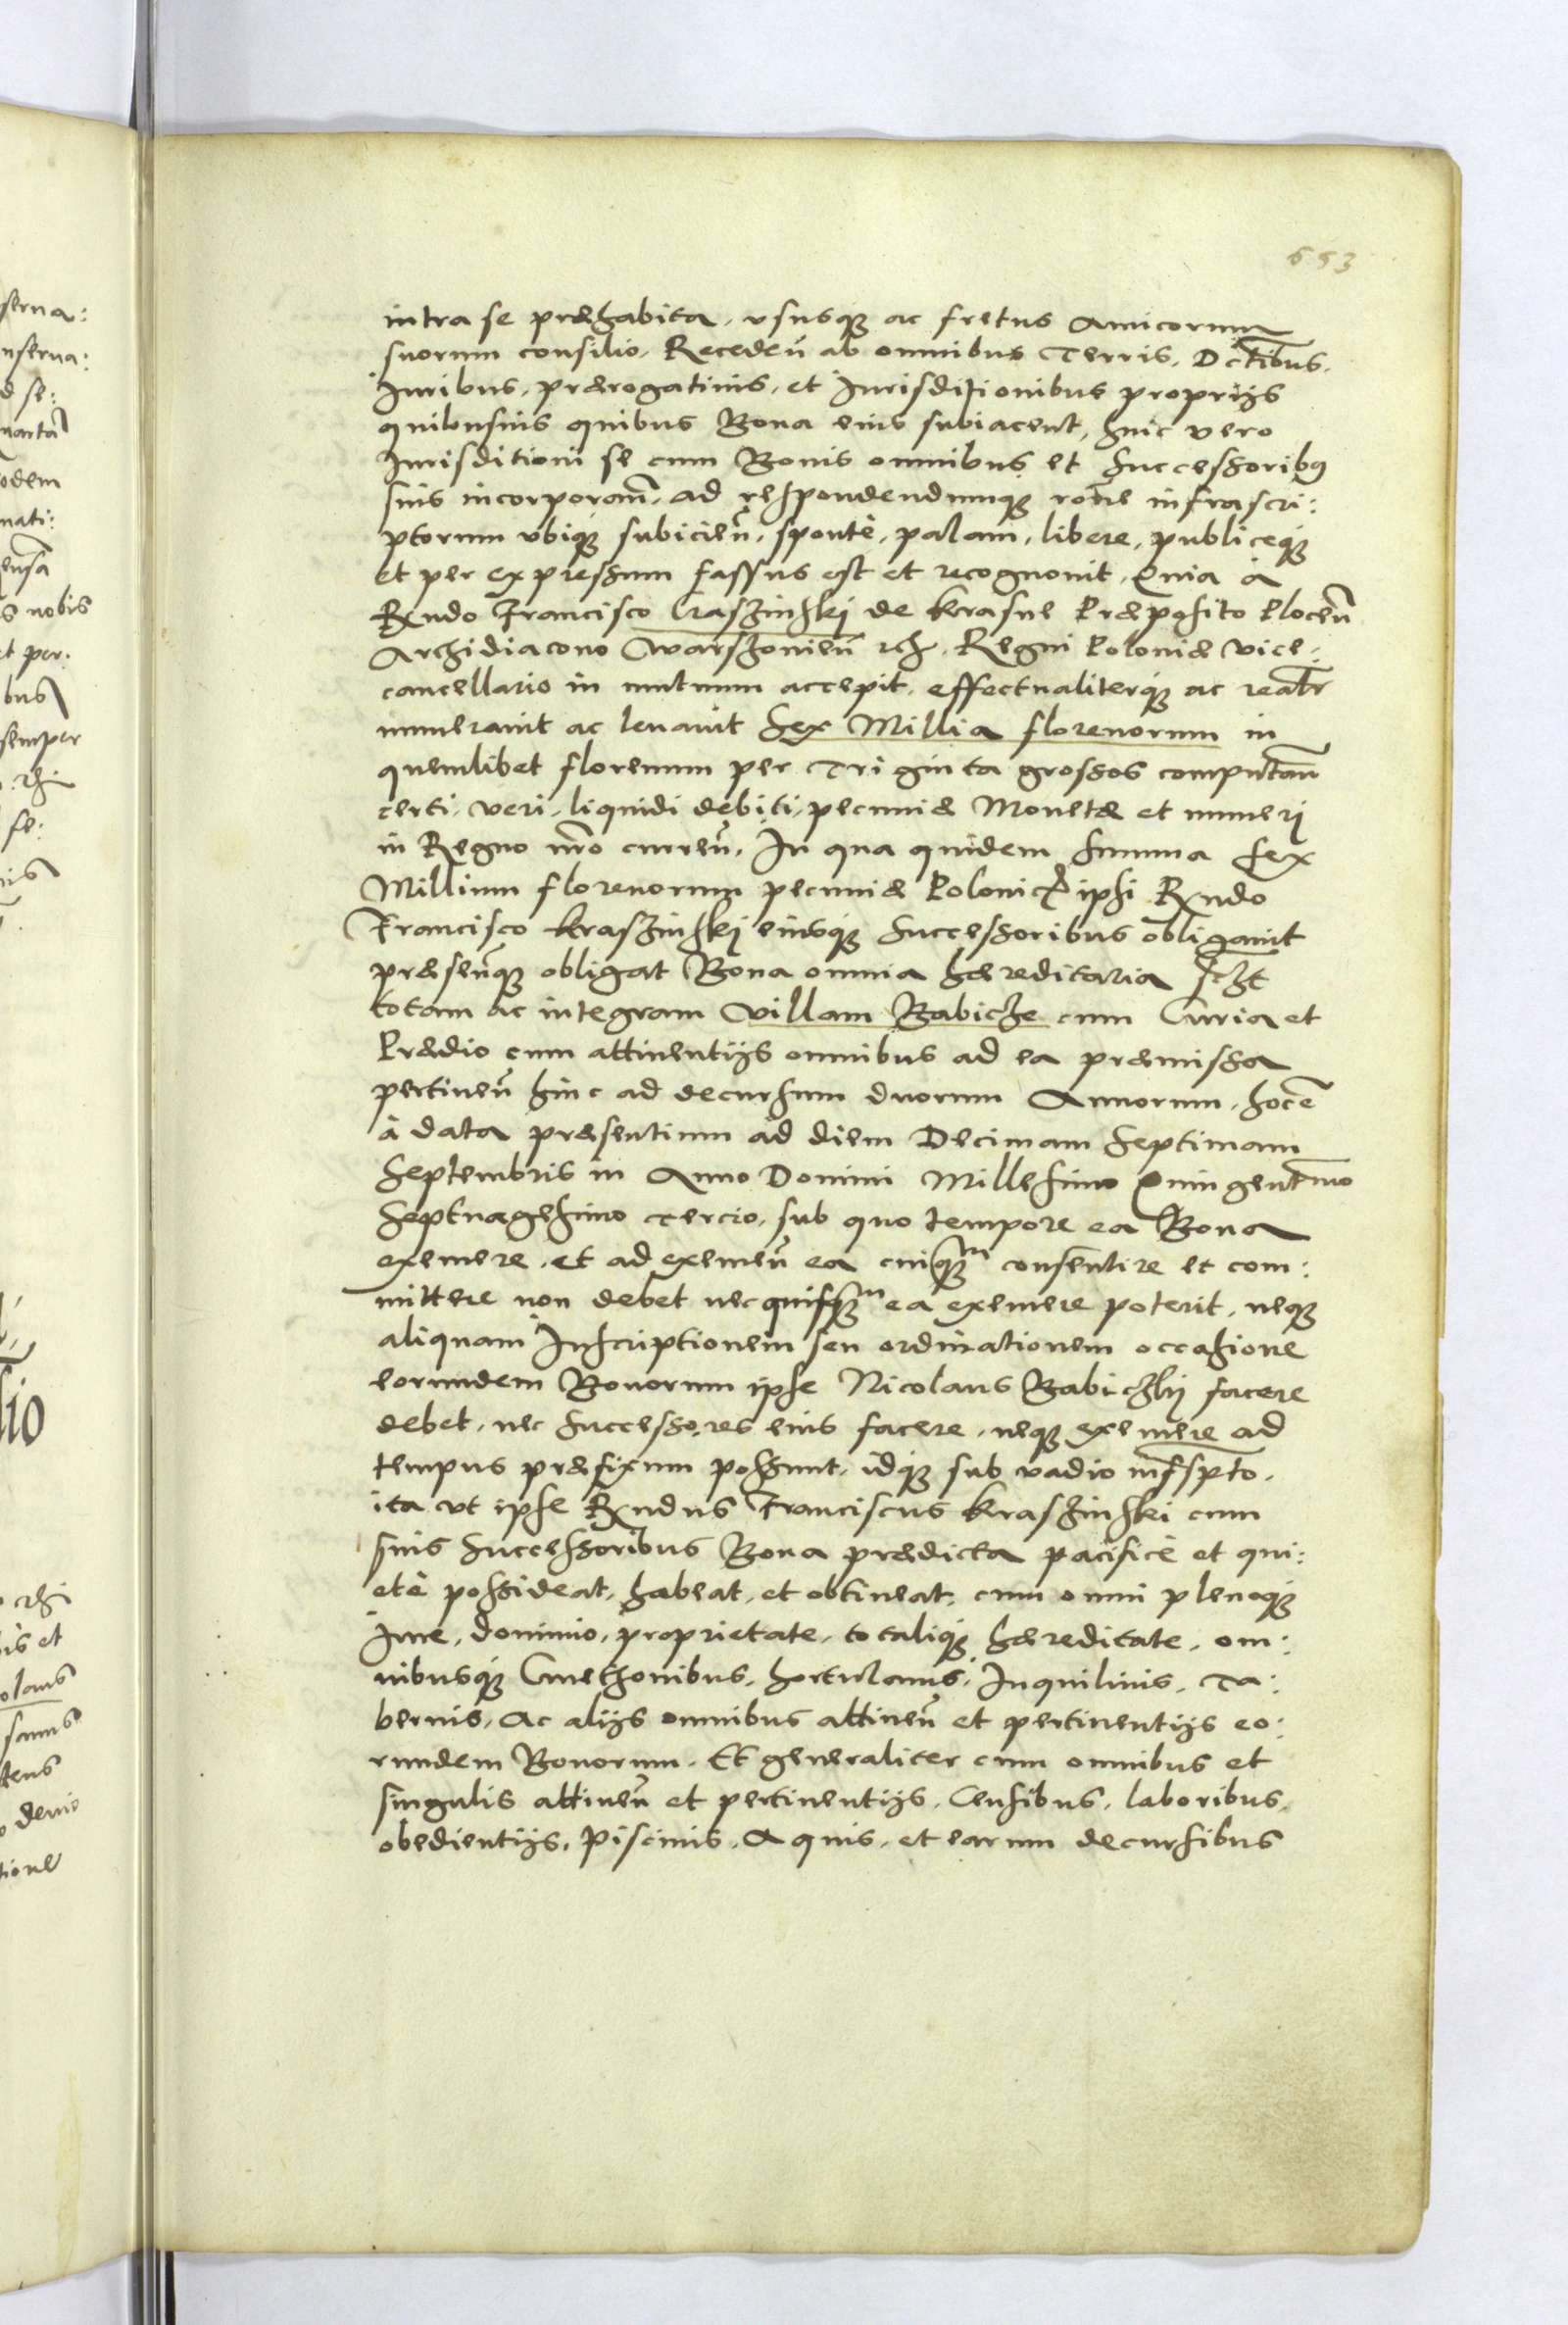 553
intra se præhabita, vsusq; ac fretus Amicorum
suorum consilio, Receden̄ ab omnibus Terris, Dc̄tibus,
Juribus, prærogatiuis, et Jurisditionibus proprijs
quibusuis quibus Bona eius subiacent, huic vero
Jurisditioni se cum Bonis omnibus et Successoribꝰ
suis incorporan̄, ad respondendumq; rōne infrascri:
ptorum vbiq; subicien̄, sponte, palam, libere, publiceq;
et per expressum fassus est et recognouit, Quia à
Rndo Francisco Craszinskj de Krasne Præposito Plocen̄
Archidiacono Warszouien̄ etc. Regni Poloniæ Vice:
cancellario in mutuum accepit, effectualiterq; ac realr̄
numerauit ac leuauit Sex Millia florenorum in
quemlibet florenum per Triginta grossos computan̄
certi, veri, liquidi debiti, pecuniæ Monetæ et numerj
in Regno nr̄o curren̄, In qua quidem Summa Sex
Millium florenorum pecuniæ Polonicæ ipsi Rndo
Francisco Kraszinskj eiusq; Successoribus obligauit
præsen̄q; obligat Bona omnia hæreditaria sczt
totam ac integram Villam Babicze cum Curia et
Prædio cum attinentijs omnibus ad ea præmissa
pertinen̄ hinc ad decursum duorum Annorum, hocē
à data præsentium ad diem Decimam Septimam
Septembris in Anno Domini Millesimo Quingentmo
Septuagesimo Tercio, sub quo tempore ea Bona
exemere, et ad exemen̄ ea cuiq;m consentire et com:
mittere non debet nec quisq;m ea exemere poterit, neq;
aliquam Inscriptionem seu ordinationem occasione
eorundem Bonorum ipse Nicolaus Babiczkij facere
debet, nec Successores eius facere, neq; exemere ad
tempus præfixum possunt, idq; sub vadio infrspto,
ita vt ipse Rndus Franciscus Kraszinski cum
suis Successoribus Bona prædicta pacificè et qui:
etè possideat, habeat, et obtineat, cum omni plenoq;
Iure, dominio, proprietate, totaliq; hæreditate, om:
nibusq; Cmethonibus, hortulanis, Inquilinis, Ta:
bernis, Ac alijs omnibus attinen̄ et pertinentijs eo:
rundem Bonorum. Et generaliter cum omnibus et
singulis attinen̄ et pertinentijs, Censibus, laboribus,
obedientijs, Piscinis, Aquis, et earum decursibus